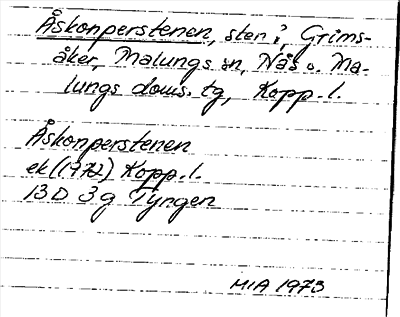 Åskonperstenen, sten i Grims-
åker, Malungs sn, Nås o. Ma-
lungs doms. tg, Kopp. l.
Åskonperstenen
ek (1972) Kopp. l.
13 D 3 g Tyngen
MIA 1973